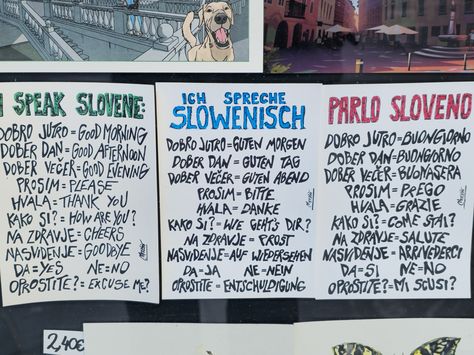 I SPEAK SLOVENE:
DOBRO JUTRO=GOOD MORNING
DOBER DAN=GOOD AFTERNOON
DOBER VEČER=GOOD EVENING
PROSIM=PLEASE
HVALA=THANK YOU
KAKO SI?=HOW ARE YOU?
NA ZDRAVJE=CHEERS
NASVIDENJE=GOODBYE
DA=YES NE=NO
OPROSTITE?=EXCUSE ME?
ICH SPRECHE
SLOWENISCH
DOBRO JUTRO=GUTEN MORGEN
DOBER DAN=GUTEN TAG
DOBER VEČER=GUTEN ABEND
PROSIM=BITTE
HVALA=DANKE
KAKO SI?=WIE GEHT'S DIR?
NA ZDRAVJE=PROST
NASVIDENJE=AUF WIEDERSEHEN
DA-JA NE=NEIN
OPROSTITE=ENTSCHULDIGUNG
PARLO SLOVENO
DOBRO JUTRO=BUONGIORNO
DOBER DAN=BUONGIORNO
DOBER VEČER=BUONASERA
PROSIM=PREGO
HVALA=GRAZIE
KAKO SI?=COME STAI?
NA ZDRAVJE=SALUTE
NASVIDENJE=ARRIVEDERCI
DA=SI NE=NO
OPROSTITE?=MI SCUSI?
2,40€